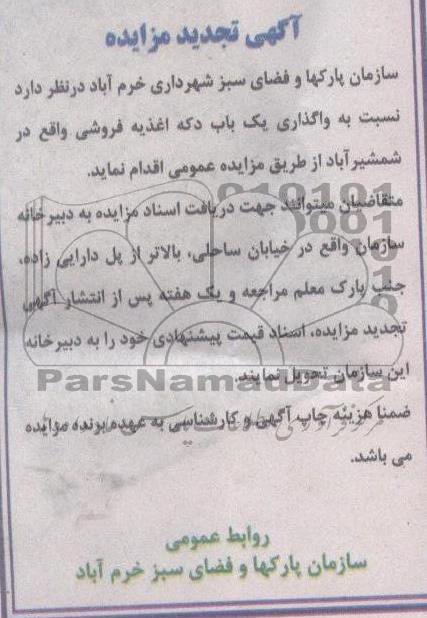 آگهی تجدید مزایده
سازمان پارکها و فضای سبز شهرداری خرم آباد درنظر دارد
نسبت به واگذاری یک باب دکه اغذیه فروشی واقع در
شمشیرآباد از طریق مزایده عمومی اقدام نماید.
متقاضیان میتوانند جهت دریافت اسناد مزایده به دبیرخانه
سازمان واقع در خیابان ساحلی، بالاتر از پل دارایی زاده،
جنب پارک معلم مراجعه و یک هفته پس از انتشار آگهی
تجدید مزایده، اسناد قیمت پیشنهادی خود را به دبیرخانه
این سازمان تحویل نمایند.
ParsNamadData
ضمنا هزینه چاپ آگهی و کارشناسی به عهده برنده مزایده
می باشد.
روابط عمومی
سازمان پارکها و فضای سبز خرم آباد